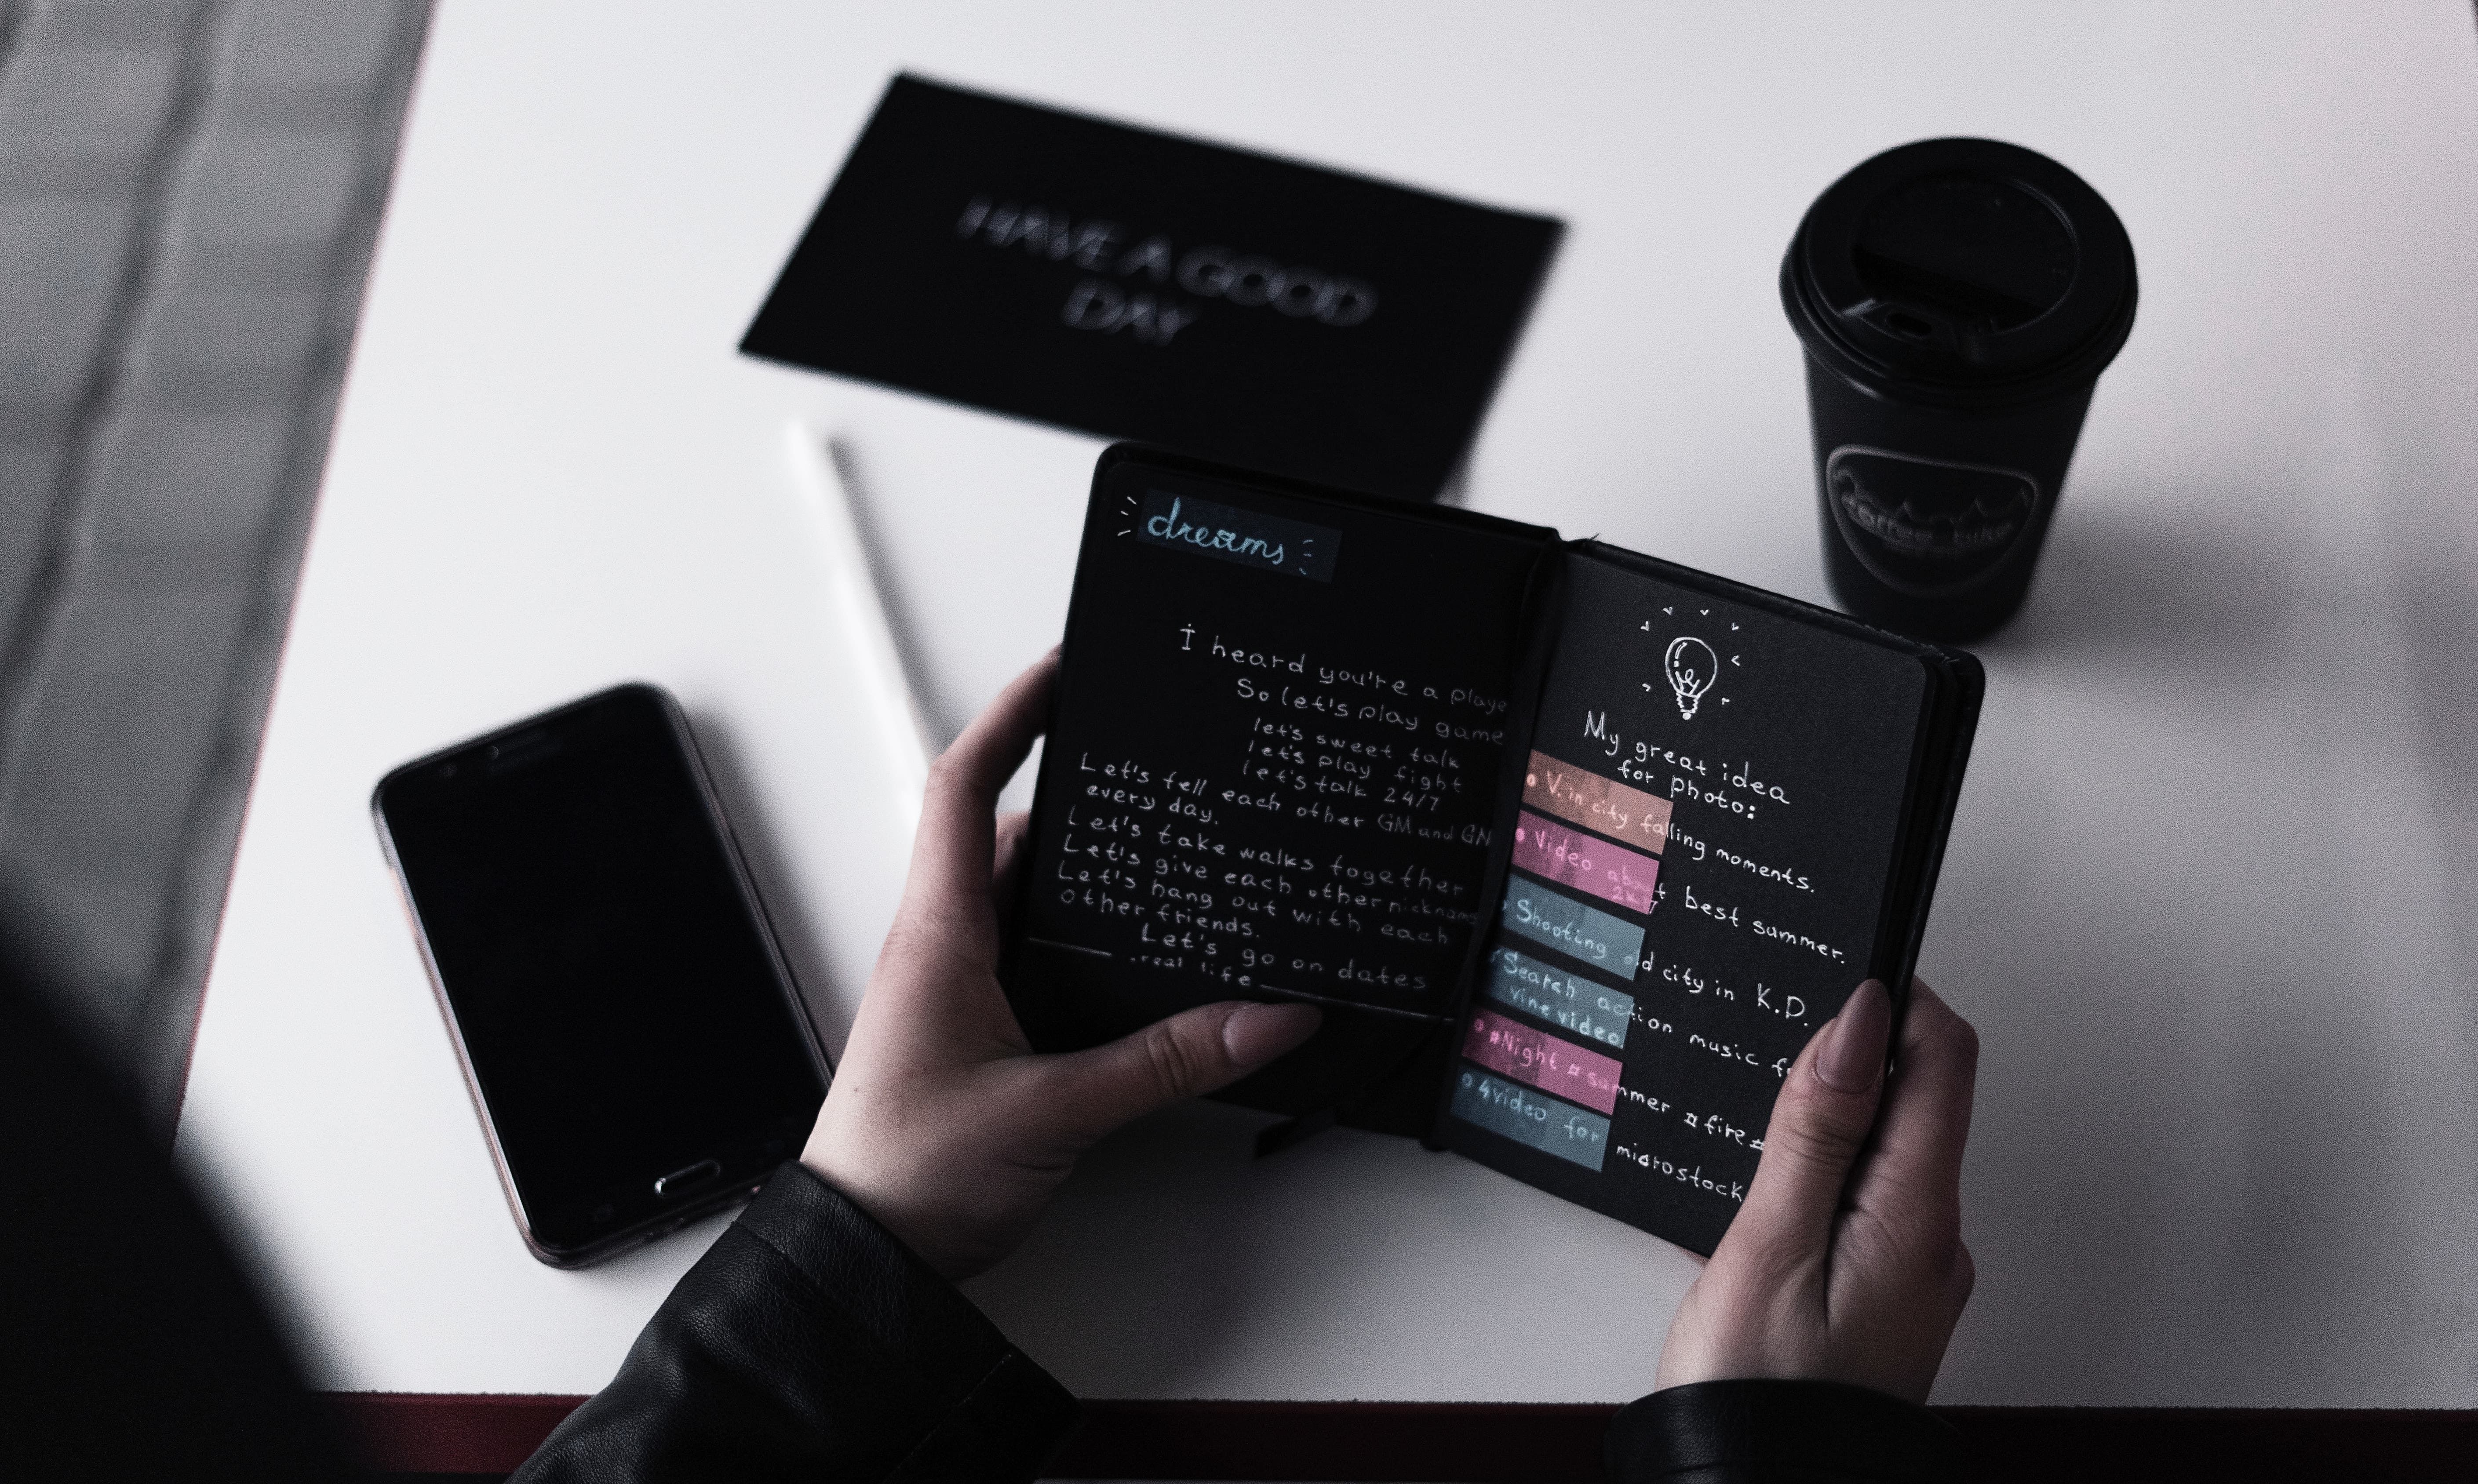 HAVE A GOOD
DAY
coffee bike
dreams
I heard you're a playe
So let's play game
let's sweet talk
let's play fight
let's talk 24/7
Let's tell each other GM and GN
every day.
Let's take walks together
Let's give each other nicknams
Let's hang out with each
other friends.
Let's go on dates
real life
My great idea
for photo:
V. in city falling moments.
Video about best summer.
2k17
Shooting old city in K.D.
Search action music f
vine video
#Night #summer #fire#
4video for microstock